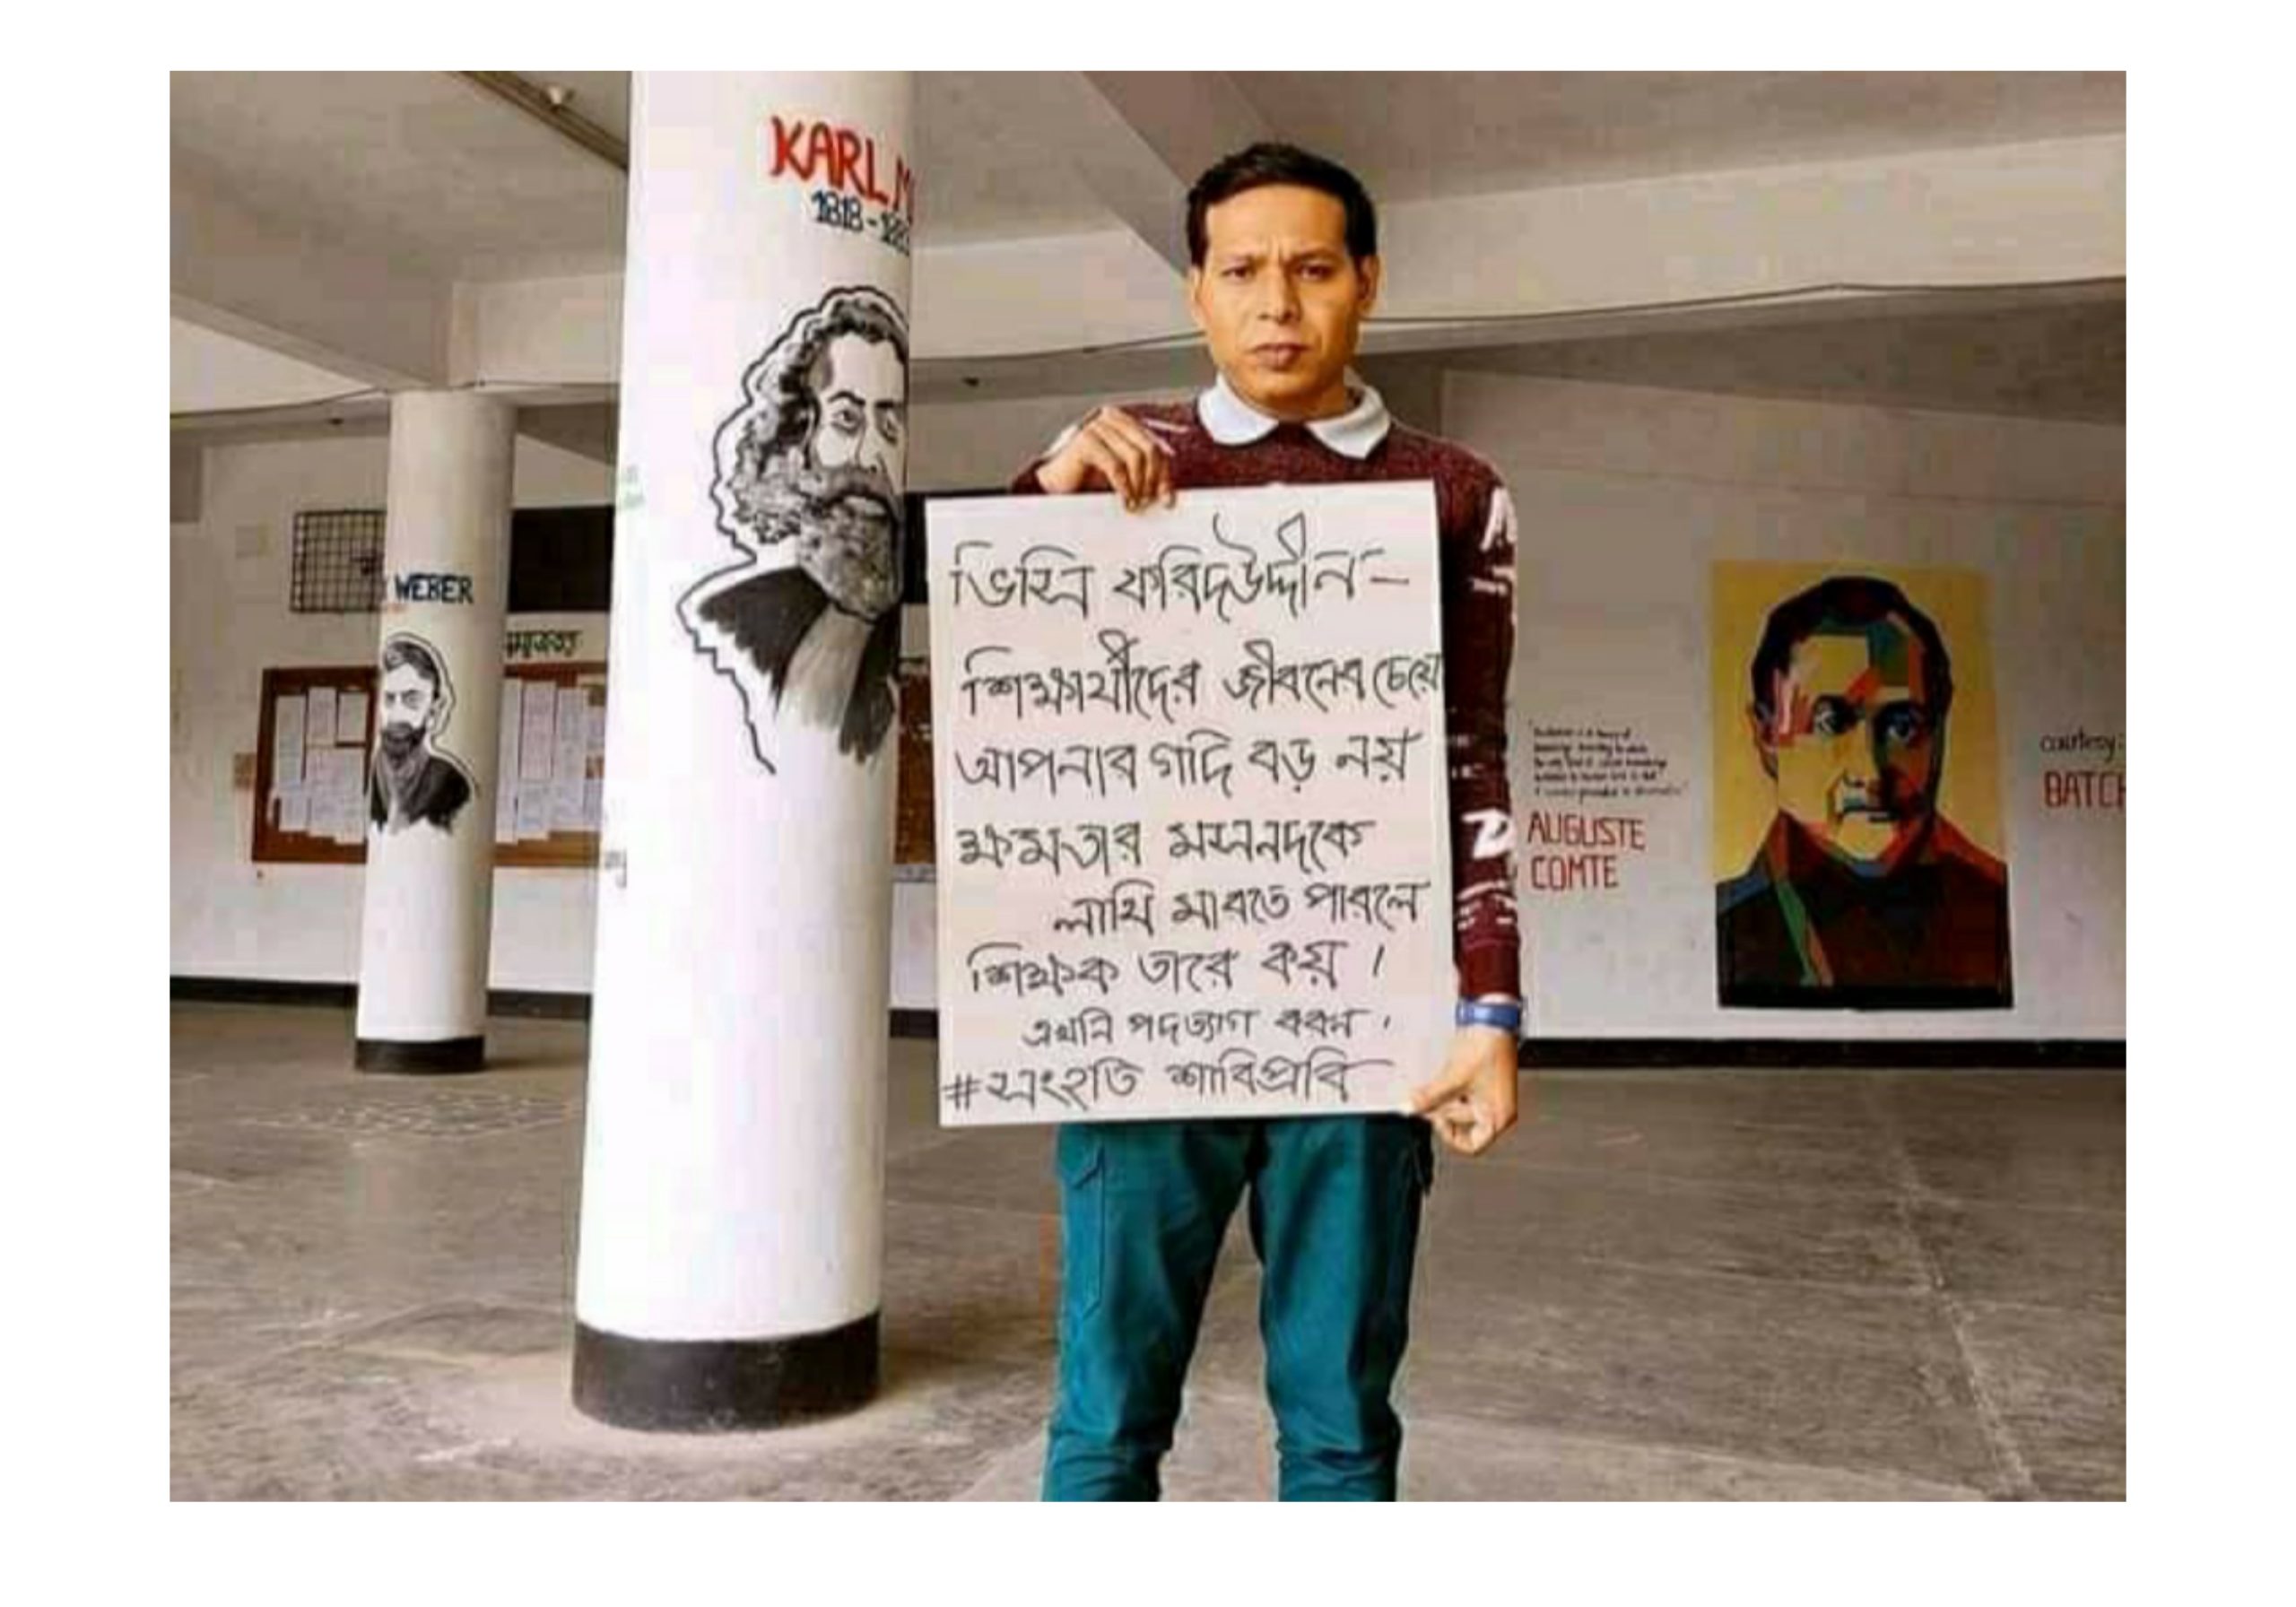 KARL M
1818 - 188
WEBER
ভিসি ফরিদউদ্দীন -
শিক্ষার্থীদের জীবনের চেয়ে
আপনার গদি বড় নয়
ক্ষমতার মসনদকে
লাথি মারতে পারলে
শিক্ষক তারে কয় ।
এখনি পদত্যাগ করুন ।
#সংহতি শাবিপ্রবি
AUGUSTE
COMTE
courtesy:
BATCH